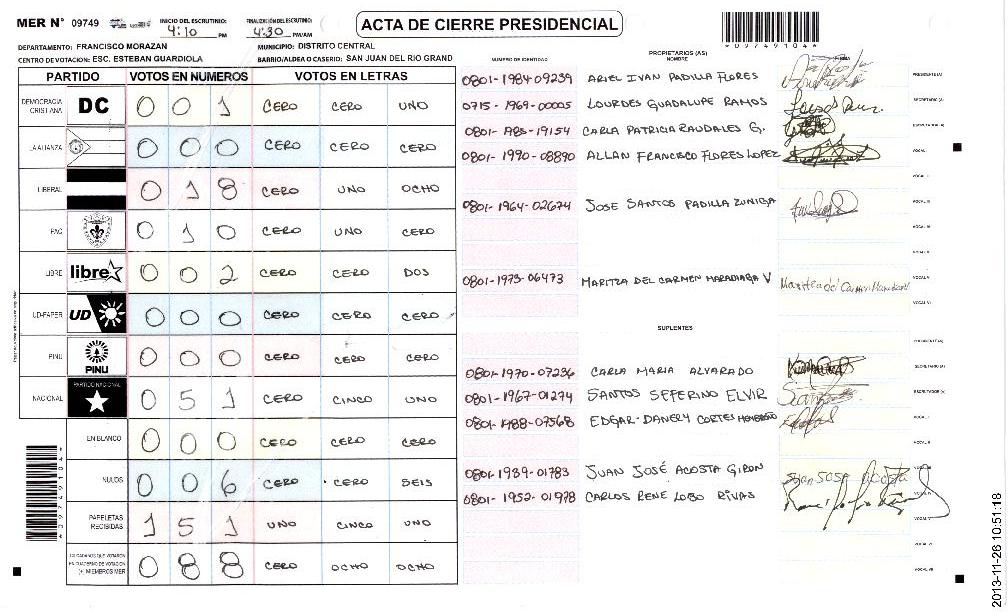 MER N° 09749 INICIO DEL ESCRUTINIO: 4:10 PM FINALIZACIÓN DEL ESCRUTINIO: 4:30 PM/AM
ACTA DE CIERRE PRESIDENCIAL
*09749104*
DEPARTAMENTO: FRANCISCO MORAZAN MUNICIPIO: DISTRITO CENTRAL
CENTRO DE VOTACION: ESC. ESTEBAN GUARDIOLA BARRIO/ALDEA O CASERIO: SAN JUAN DEL RIO GRAND
PARTIDO VOTOS EN NUMEROS VOTOS EN LETRAS
DEMOCRACIA CRISTIANA DC 0 0 1 CERO CERO UNO
LA ALIANZA 0 0 0 CERO CERO CERO
LIBERAL 0 1 8 CERO UNO OCHO
PAC 0 1 0 CERO UNO CERO
LIBRE libre 0 0 2 CERO CERO DOS
UD-FAPER UD 0 0 0 CERO CERO CERO
PINU PINU 0 0 0 CERO CERO CERO
NACIONAL PARTIDO NACIONAL 0 5 1 CERO CINCO UNO
EN BLANCO 0 0 0 CERO CERO CERO
NULOS 0 0 6 CERO CERO SEIS
PAPELETAS RECIBIDAS 1 5 1 UNO CINCO UNO
CIUDADANOS QUE VOTARON EN CUADERNO DE VOTACION (+) MIEMBROS MER 0 8 8 CERO OCHO OCHO
NUMERO DE IDENTIDAD PROPIETARIOS (AS) FIRMA
0801-1984-09239 ARIEL IVAN PADILLA FLORES PRESIDENTE(A)
0715-1969-00005 LOURDES GUADALUPE RAMOS SECRETARIO (A)
0801-1985-19154 CARLA PATRICIA RAUDALES G. ESCRUTADOR (A)
0801-1990-08890 ALLAN FRANCISCO FLORES LOPEZ VOCAL I
VOCAL II
0801-1964-02674 JOSE SANTOS PADILLA ZUNIGA VOCAL III
VOCAL IV
0801-1973-06473 MARITZA DEL CARMEN MARADIAGA V VOCAL V
VOCAL VI
SUPLENTES
PRESIDENTE (A)
0801-1970-07236 CARLA MARIA ALVARADO SECRETARIO (A)
0801-1967-01274 SANTOS SEFERINO ELVIR ESCRUTADOR (A)
0801-1988-07568 EDGAR DANERY CORTES VOCAL I
VOCAL II
0801-1939-01783 JUAN JOSÉ ACOSTA GIRON Juan Jose Acosta VOCAL III
0801-1952-01978 CARLOS RENE LOBO RIVAS VOCAL IV
VOCAL V
VOCAL VI
VOCAL VII
2013-11-26 10:51:18